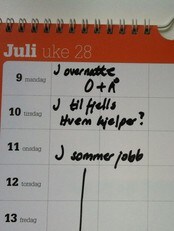 Juli uke 28
9 mandag J overnatte
O + R
10 tirsdag J til fjells
Hvem hjelper?
11 onsdag
J sommerjobb
12 torsdag
13 fredag